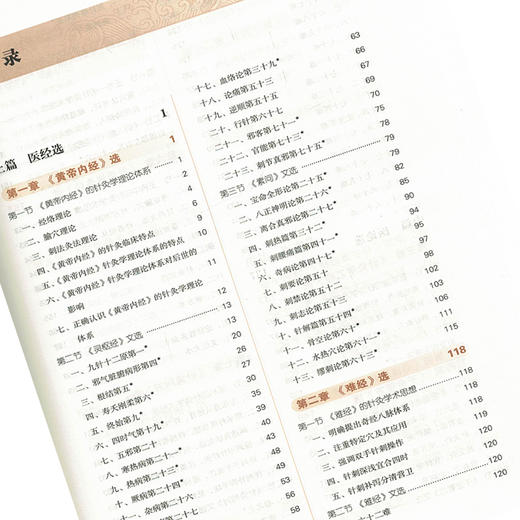 录
篇 医经选 1
第一章 《黄帝内经》选 1
第一节 《黄帝内经》的针灸学理论体系 1
一、经络理论 2
二、腧穴理论 4
三、刺法灸法理论 6
四、《黄帝内经》的针灸临床特点 9
五、《黄帝内经》针灸学理论体系的特点 10
六、《黄帝内经》针灸学理论体系对后世的
影响 11
七、正确认识《黄帝内经》的针灸学理论
体系 12
第二节 《灵枢经》文选 13
一、九针十二原第一* 13
二、邪气脏腑病形第四* 20
三、根结第五* 26
四、寿夭刚柔第六* 30
五、终始第九*
六、四时气第十九*
七、五邪第二十
八、寒热病第二十一*
九、热病第二十三*
十、厥病第二十四*
十一、杂病第二十六
63
十七、血络论第三十九* 66
十八、论痛第五十三 67
十九、逆顺第五十五 68
二十、行针第六十七
二十一、邪客第七十一*
二十二、官能第七十三*
二十三、刺节真邪第七十五*
第三节 《素问》文选 79
一、宝命全形论第二十五* 79
二、八正神明论第二十六* 82
三、离合真邪论第二十七* 85
四、刺热篇第三十二* 90
五、刺腰痛篇第四十一* 94
六、奇病论第四十七* 97
七、刺要论第五十 98
八、刺禁论第五十二 102
九、刺志论第五十三 103
十、针解篇第五十四* 107
十一、骨空论第六十* 108
十二、水热穴论第六十一* 110
十三、缪刺论第六十三* 115
第二章 《难经》选 118
第一节 《难经》的针灸学术思想 118
一、明确提出奇经八脉体系 118
二、注重特定穴及其应用 119
三、强调双手针刺操作 120
四、针刺深浅宜合四时 120
五、针刺补泻分清营卫 120
第二节 《难经》文选 120
十二难